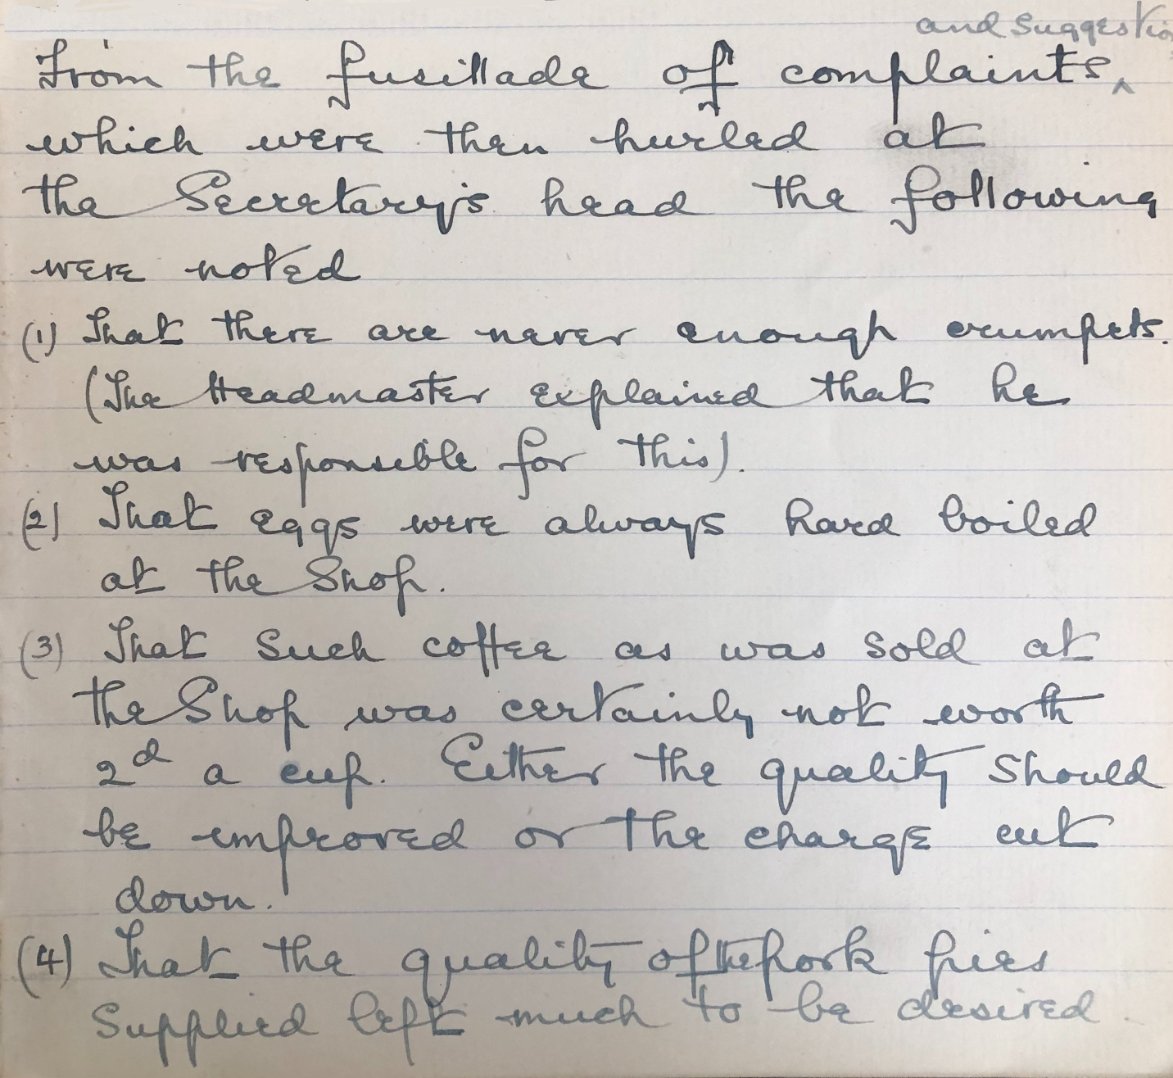 and suggestio
From the fusillade of complaints ^
which were then hurled at
the Secretary's head the following
were noted
(1) That there are never enough crumpets.
(The Headmaster explained that he
was responsible for this).
(2) That eggs were always hard boiled
at the Shop.
(3) That such coffee as was sold at
the Shop was certainly not worth
2d a cup. Either the quality should
be improved or the charge cut
down.
(4) That the quality of the pork pies
supplied left much to be desired.